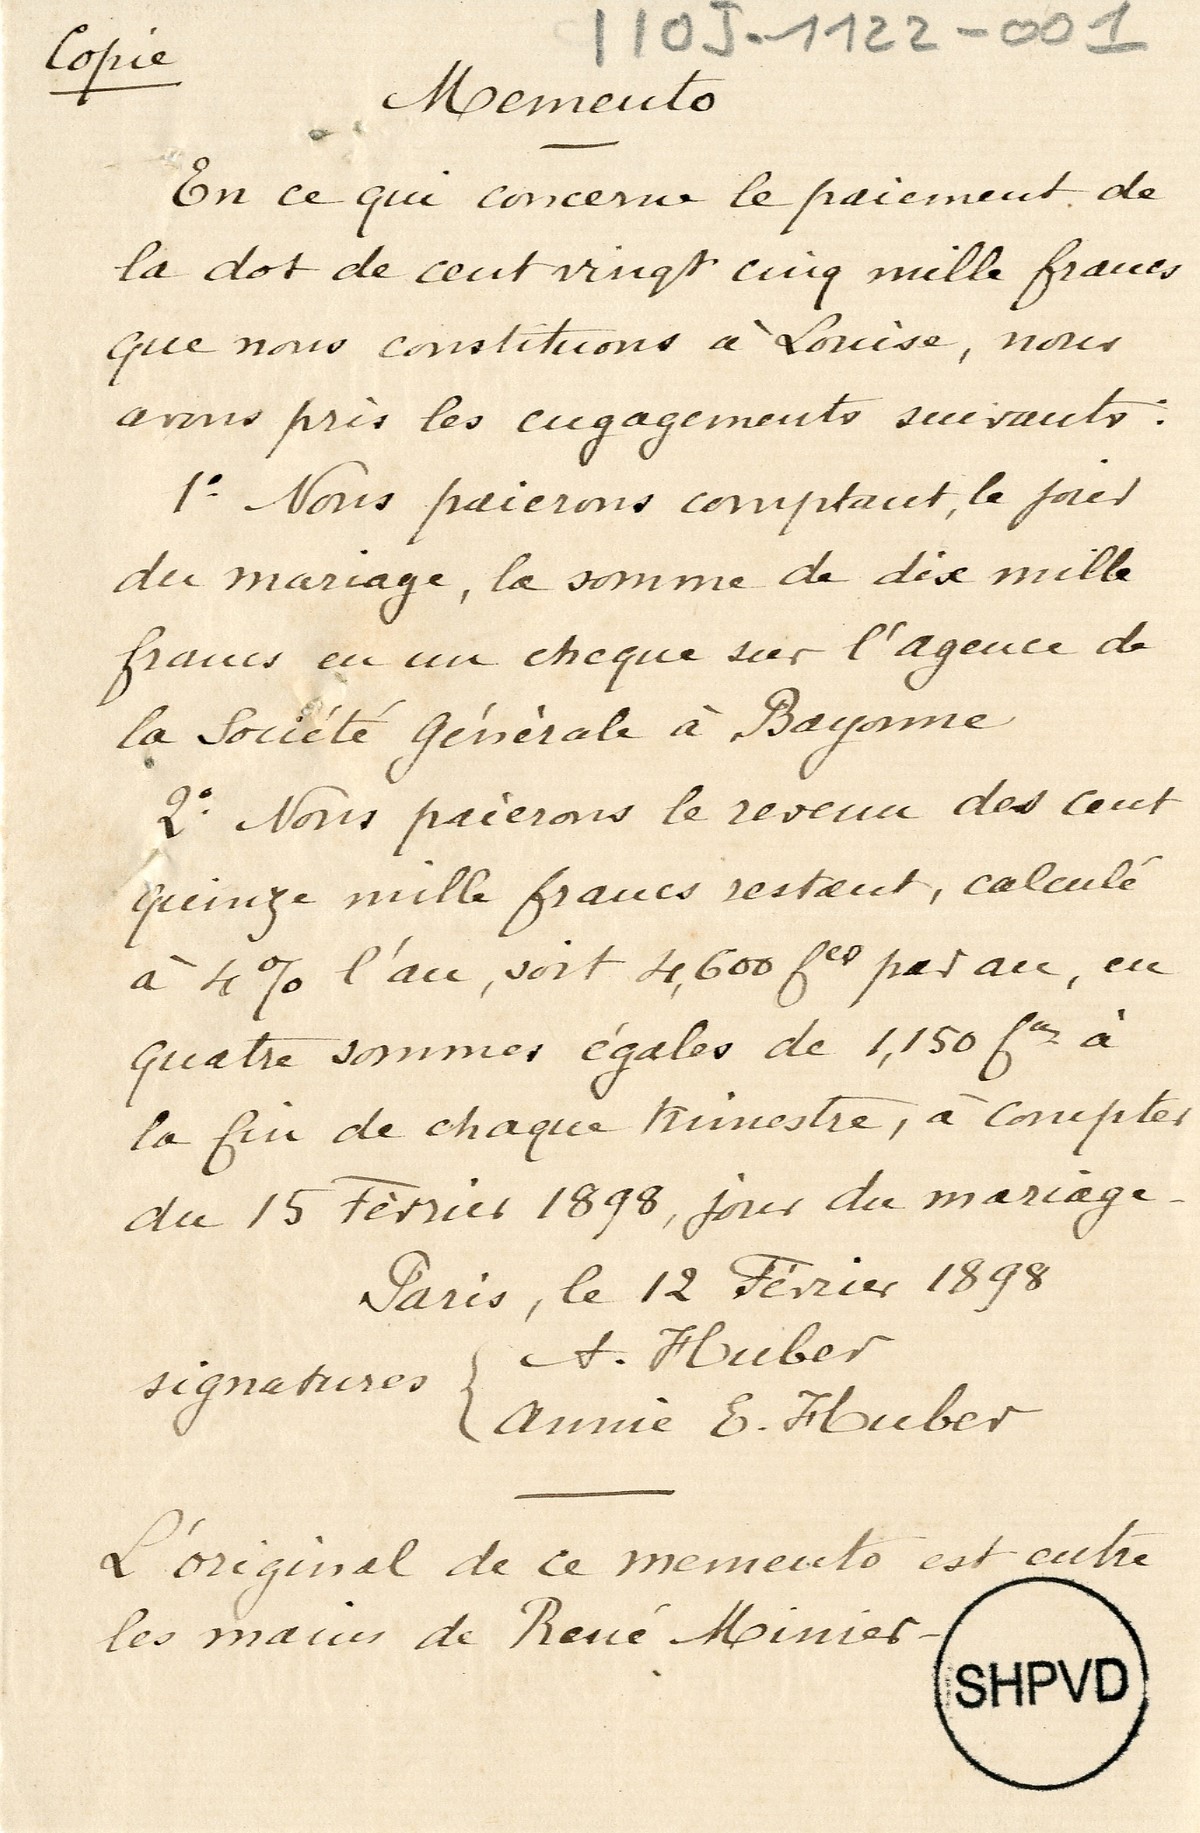 110J-1122-001
Copie
Memento
En ce qui concerne le paiement de
la dot de cent vingt cinq mille francs
que nous constituons à Louise, nous
avons pris les engagements suivants :
1° Nous paierons comptant, le jour
du mariage, la somme de dix mille
francs en un cheque sur l'agence de
la Société Générale à Bayonne
2° Nous paierons le revenu des cent
quinze mille francs restant, calculé
à 4% l'an, soit 4,600 fcs par an, en
quatre sommes égales de 1,150 fcs à
la fin de chaque trimestre, à compter
du 15 Février 1898, jour du mariage -
Paris, le 12 Février 1898
signatures { A. Huber
Annie E. Huber
L'original de ce memento est entre
les mains de René Minier -
SHPVD